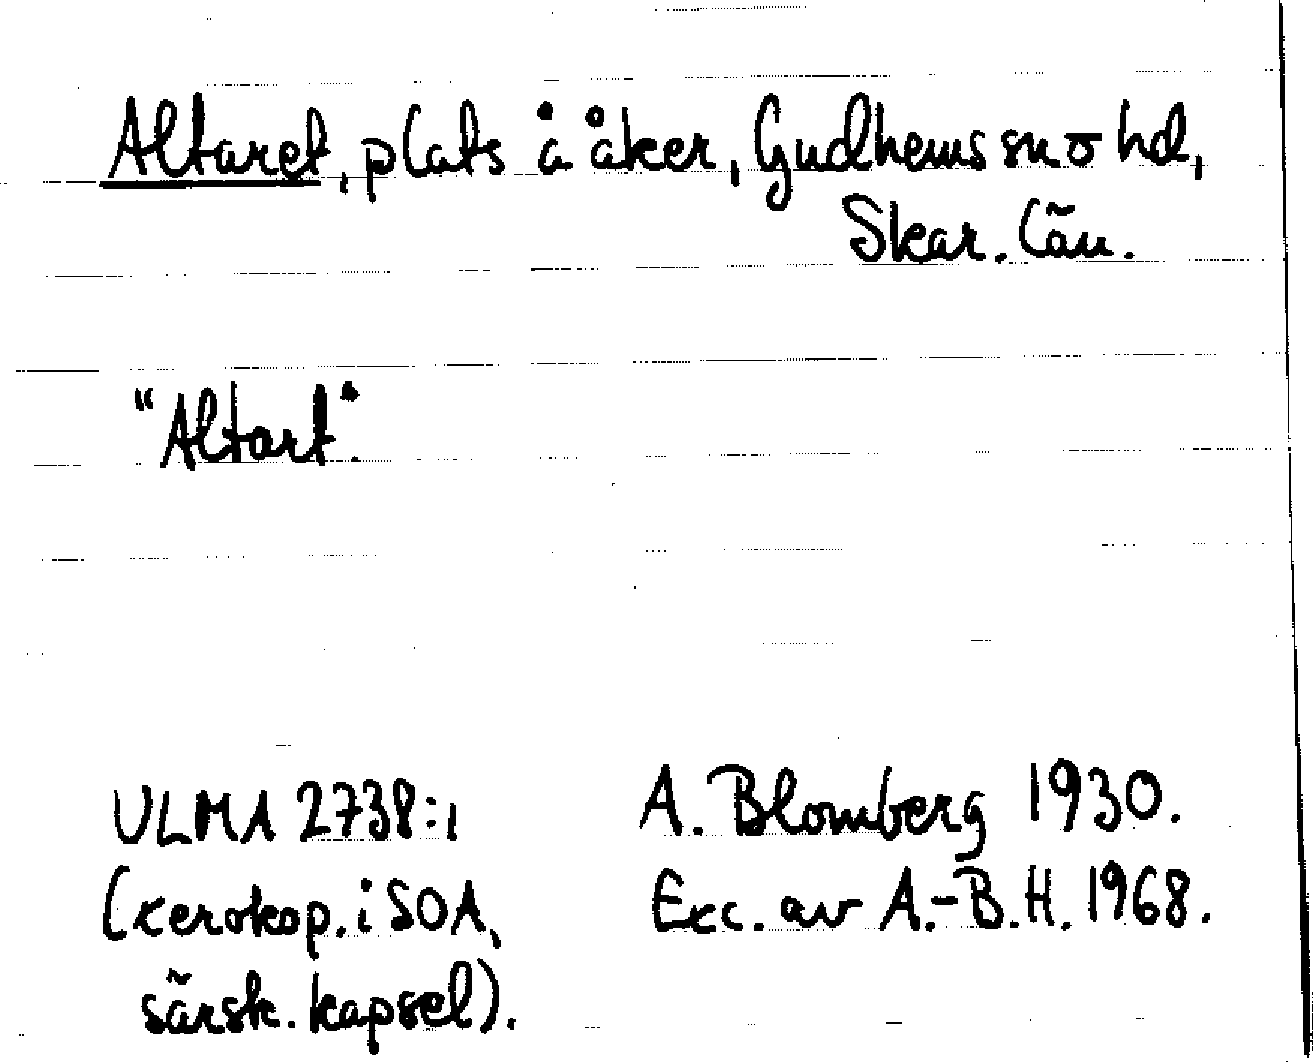 Altaret, plats å åker, Gudhems sn o hd,
Skar. län.
"Altart".
ULMA 2738:1
A. Blomberg 1930.
(xerokop. i SOA,
Exc. av A.-B.H. 1968.
särsk. kapsel).